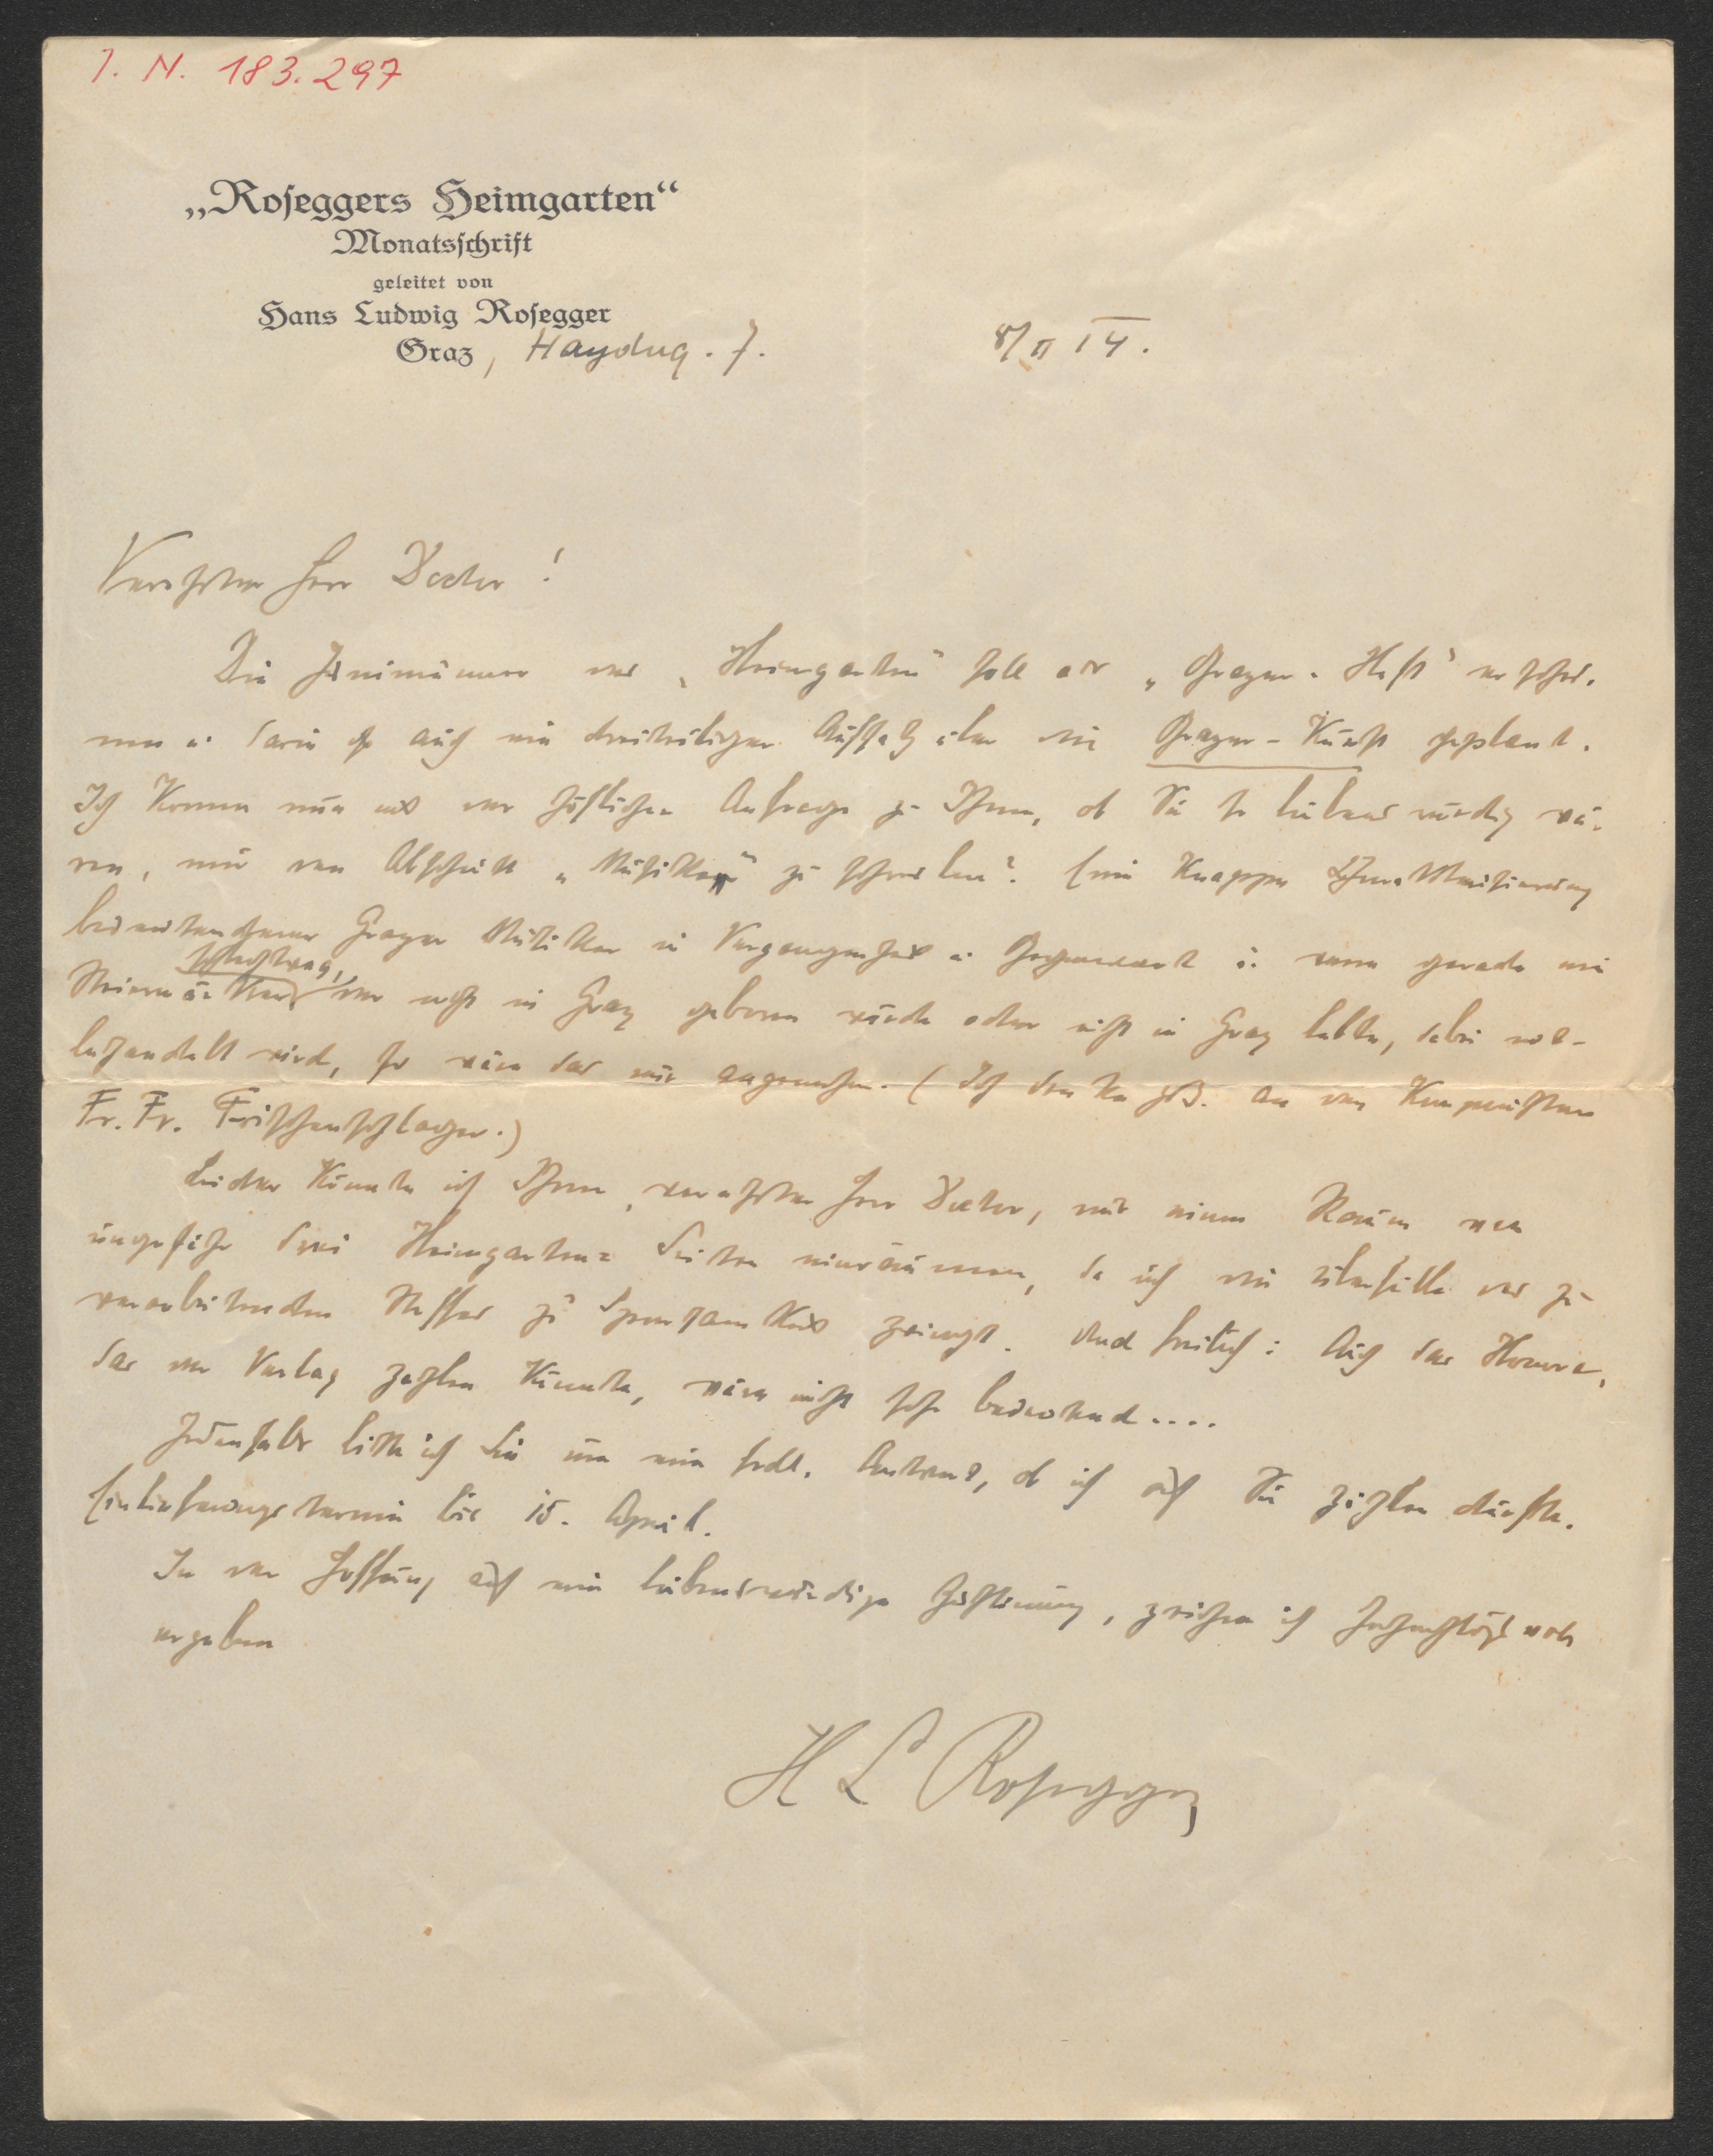 I. N. 183.297
„Roseggers Heimgarten“
Monatsschrift
geleitet von
Hans Ludwig Rosegger
Graz, Haydng. 7.
8/II 14.
Verehrter Herr Doctor!
Die Juninummer des „Heimgarten“ soll als „Grazer-Heft“ erschei-
nen u. darin ist auch ein dreiteiliger Aufsatz über die Grazer-Kunst geplant.
Ich komme nun mit der höflichen Anfrage zu Ihnen, ob Sie so liebenswürdig wä-
ren, mir den Abschnitt „Musiker“ zu schreiben? Eine knappe Charakterisierung
bedeutenderer Grazer Musiker in Vergangenheit u. Gegenwart u. wenn gerade ein
Steiermärker, der nicht in Graz geboren wurde oder nicht in Graz lebte, dabei mit-
behandelt wird, so wäre das mir angenehm. (Ich denke zB. an den Komponisten
Fr. Fr. Frischenschlager.)
Leider könnte ich Ihnen, verehrter Herr Doctor, nur einen Raum von
ungefähr drei Heimgarten-Seiten einräumen, da mich die Überfülle des zu
verarbeitenden Stoffes zu Sparsamkeit zwingt. Und freilich: Auch das Honorar,
das der Verlag zahlen könnte, wäre nicht sehr bedeutend....
Jedenfalls bitte ich Sie um eine frdl. Antwort, ob ich auf Sie zählen dürfte.
Einlieferungstermin bis 15. April.
In der Hoffnung auf eine liebenswürdige Zustimmung, zeichne ich hochachtungsvoll
ergeben
H L Rosegger